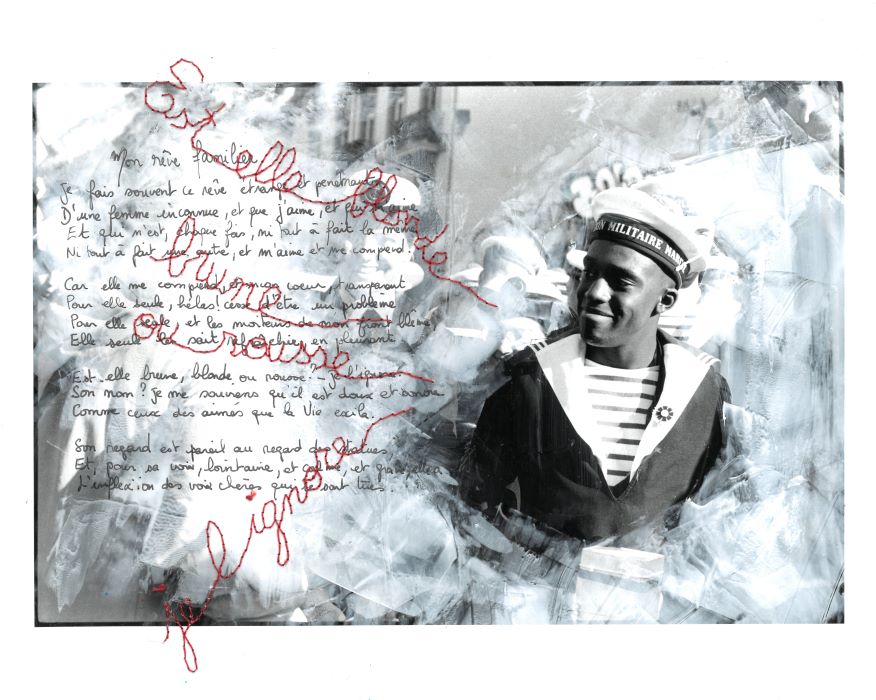 Mon rêve familier
Je fais souvent ce rêve etrange et penetrant
D'une femme inconnue, et que j'aime, et qui m'aime
Et qui n'est, chaque fois, ni tout à fait la même
Ni tout à fait une autre, et m'aime et me comprend.
Car elle me comprend, et mon coeur, transparent
Pour elle seule, hélas! cesse d'être un problème
Pour elle seule et les moiteurs de mon front blême,
Elle seule les sait rafraichir, en pleurant.
Est-elle brune, blonde ou rousse? - je l'ignore.
Son nom? je me souviens qu'il est doux et sonore
Comme ceux des aimés que la Vie exila.
Son regard est pareil au regard des statues,
Et, pour sa voix, lointaine, et calme, et grave, elle a
L'inflexion des voix chères qui se sont tues.
Est elle blonde
brune
ou rousse
je l'ignore
ON MILITAIRE MARS